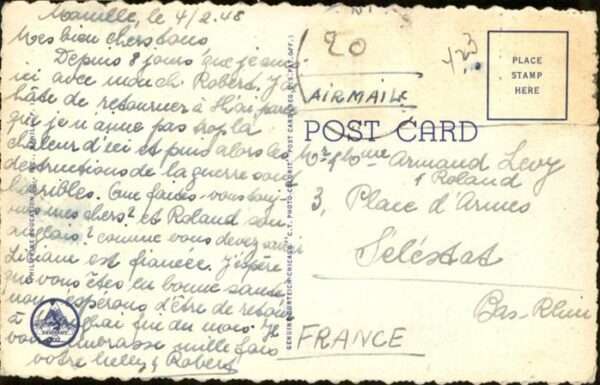 Manille, le 4/2.48
Mes bien chers tous
Depuis 8 jours que je suis
ici avec mon ch. Robert. J'ai
hâte de retourner à parce
que je n'aime pas trop la
chaleur d'ici et puis alors les
destructions de la guerre sont
horribles. Que faites-vous touj.
mes chers? et Roland son
anglais? comme vous devez savoir
Liliane est fiancée. J'espère
que vous êtes en bonne santé
nous espérons d'être de retour
à fin du mois. Je
vous embrasse mille fois
votre & Robert
20
423
AIRMAIL
PLACE
STAMP
HERE
POST CARD
Mr & Mme Armand Levy
& Roland
3, Place d'Armes
Séléstat
Bas-Rhin
FRANCE
GENUINE CURTEICH-CHICAGO "C.T. PHOTO-COLORIT" POST CARD (REG. U.S. PAT. OFF.)